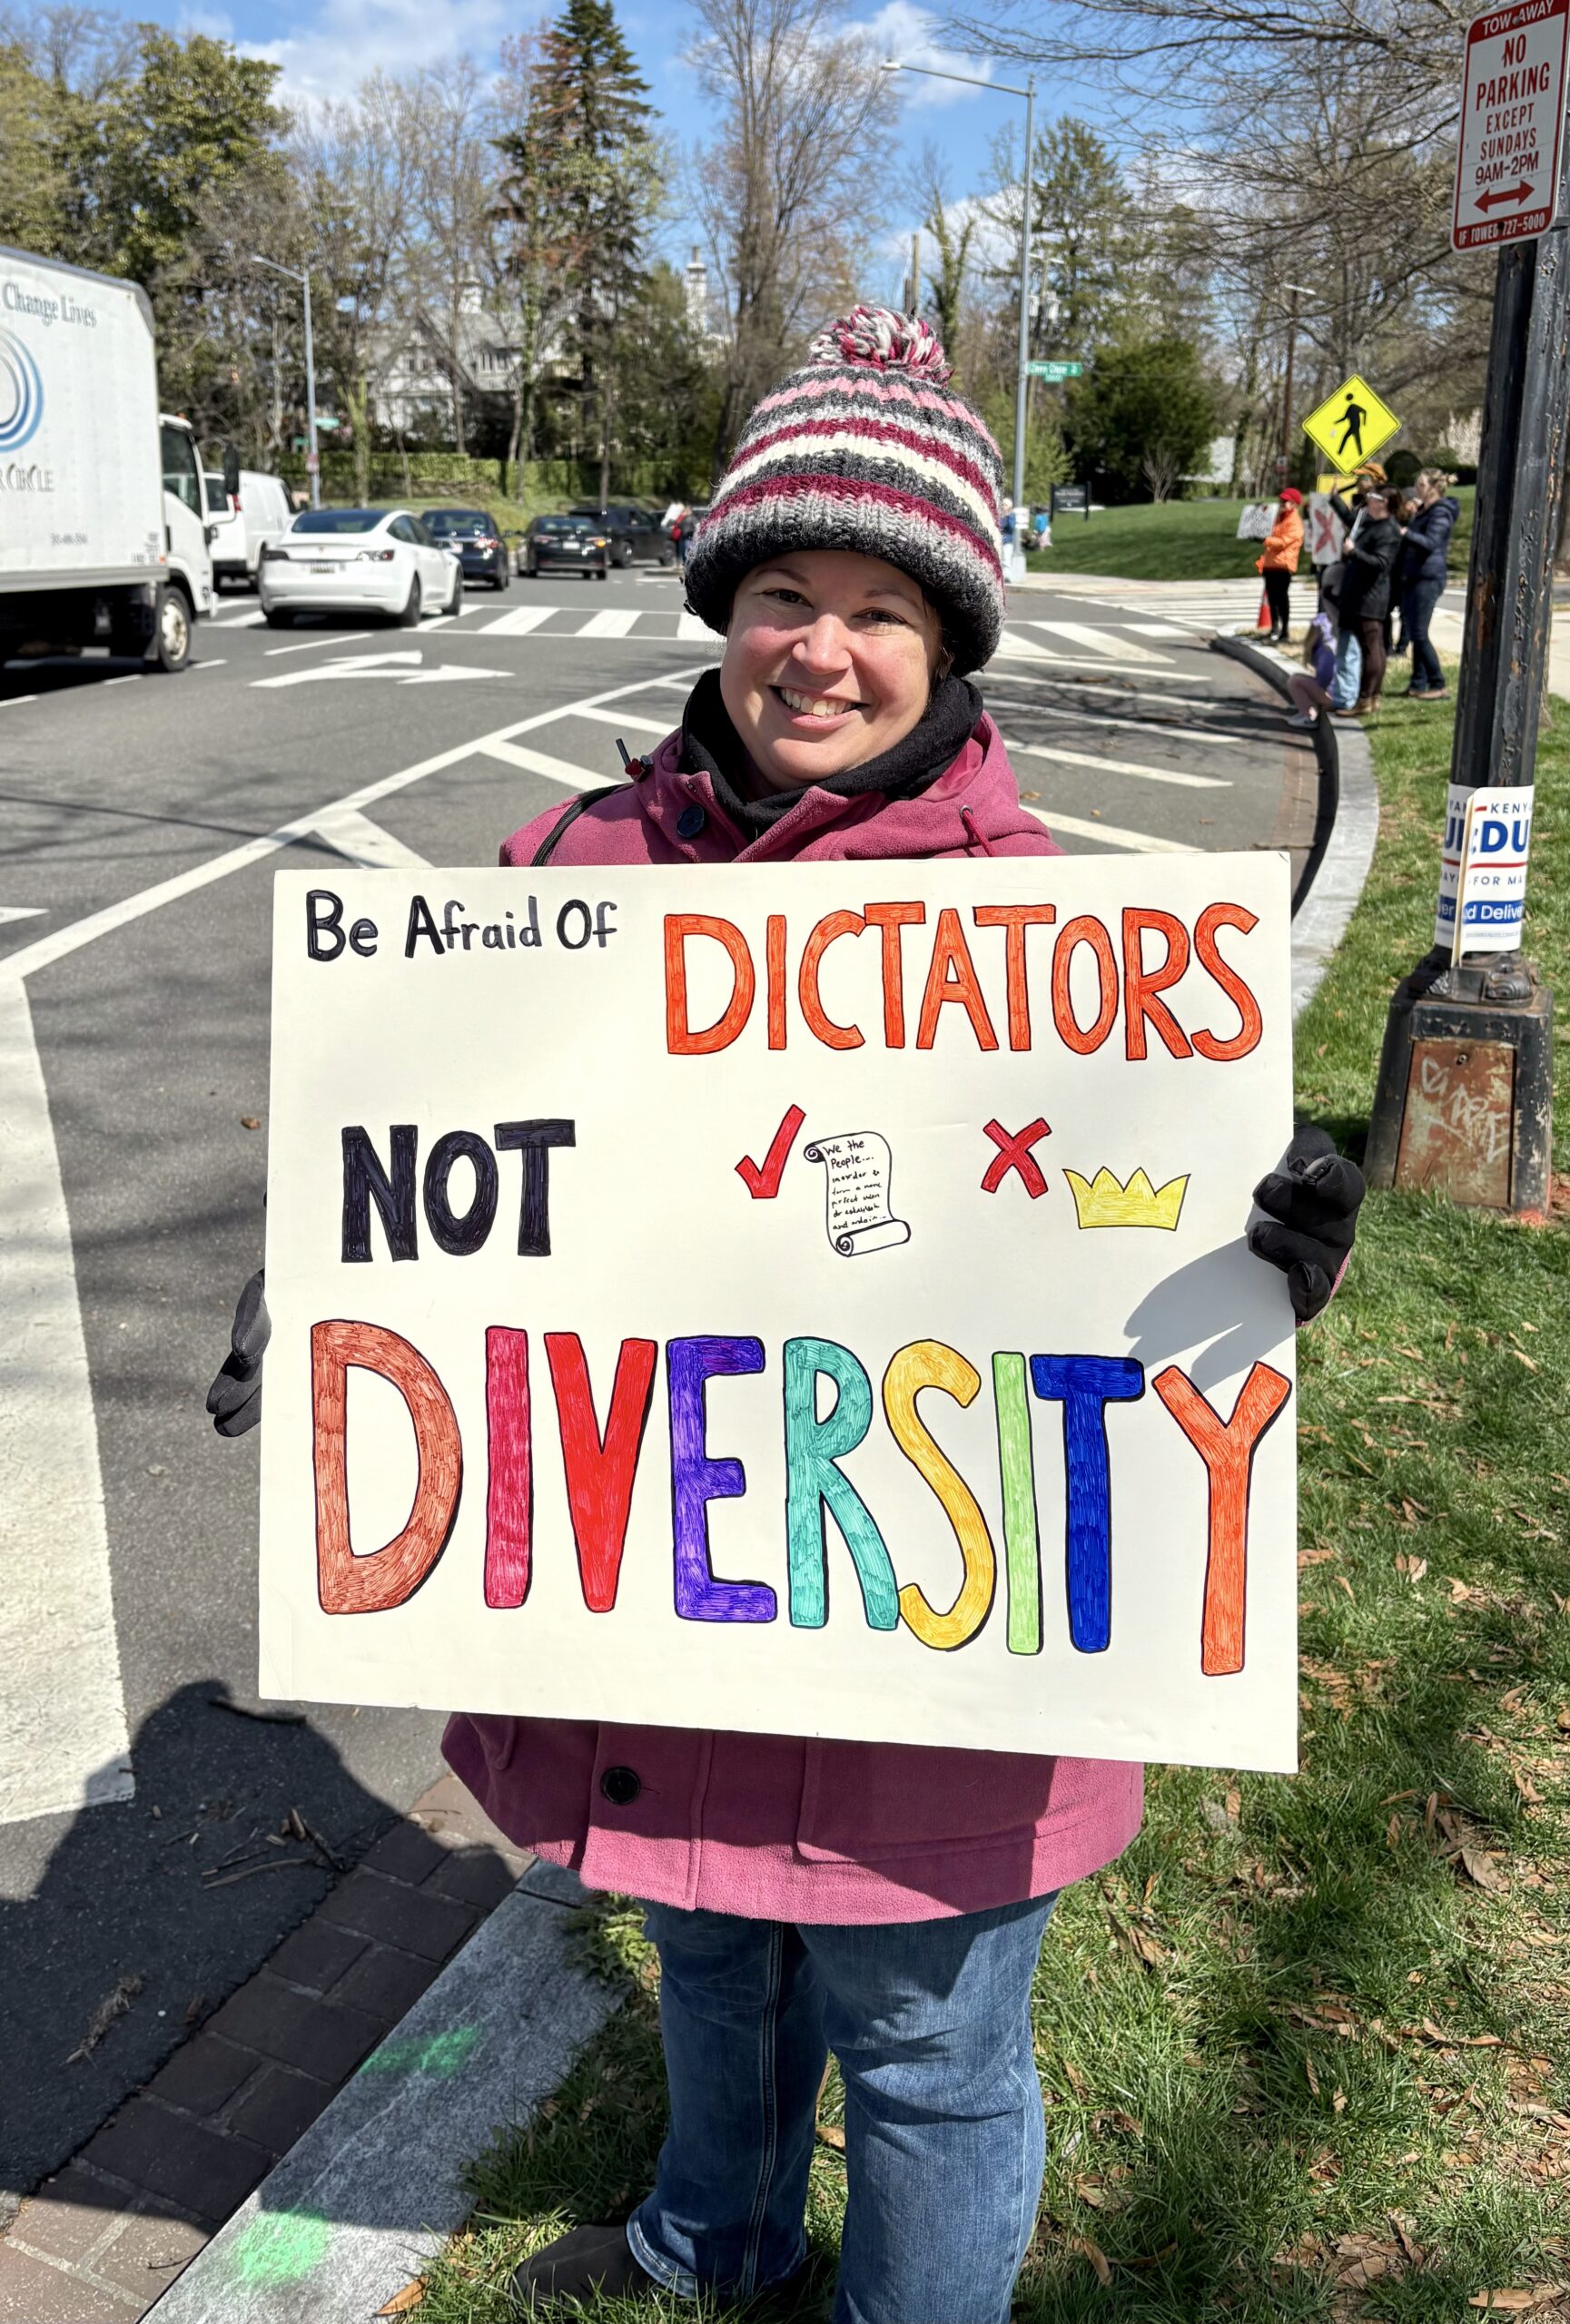 TOW-AWAY
NO
PARKING
EXCEPT
SUNDAYS
9AM-2PM
IF TOWED 727-5000
Change Lives
CIRCLE
KENY
DU
FOR MA
d Deliver
Be Afraid Of DICTATORS
NOT
We the
People...
in order to
form a more
perfect union
and
DIVERSITY